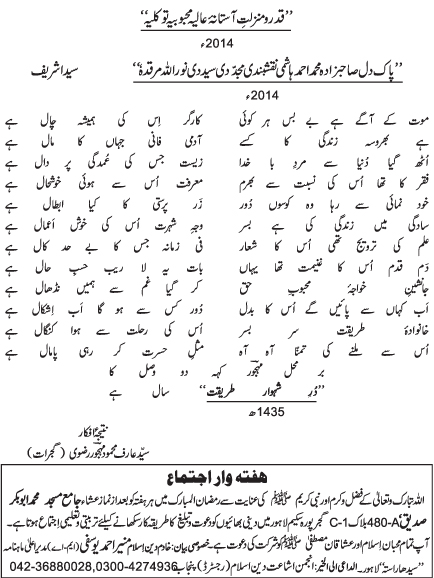 ’’قدر و منزلتِ آستانۂ عالیہ محبوبیہ توکلیہ‘‘
2014ء
’’پاک دل صاحبزادہ محمد احمد ہاشمی نقشبندی مجدّدی سیددی نور اللہ مرقدہٗ‘‘ سیدا شریف
2014ء
موت کے آگے ہے بے بس ہر کوئی کارگر اِس کی ہمیشہ چال ہے
ہے بھروسہ زندگی کا کسے آدمی فانی جہاں کا مال ہے
اُٹھ گیا دُنیا سے مردِ با خدا زیست جس کی عُمدگی پر دال ہے
فقر کا تھا اُس کی نسبت سے بھرم معرفت اُس سے ہوئی خوشحال ہے
خود نمائی سے رہا وہ کوسوں دُور زَر پرستی کا کیا ابطال ہے
سادگی میں زندگی کی ہے بسر وجہِ شہرت اُس کی خوش اَعمال ہے
علم کی ترویج تھی اُس کا شعار فی زمانہ جس کا بے حد کال ہے
دَم قدم اُس کا غنیمت تھا یہاں بات یہ لا ریب حسبِ حال ہے
جانشینِ خواجۂ محبوبِ حق کر گیا غم سے ہمیں نڈھال ہے
اَب کہاں سے پائیں گے اُس کا بدل دُور کس سے ہو گا اَب اِشکال ہے
خانوادۂ طریقت سر بسر اُس کی رحلت سے ہوا کنگال ہے
اُس سے ملنے کی تمنّا آہ آہ مثلِ حسرت کر رہی پامال ہے
بر محل مہجورؔ کہہ دو وصل کا
’’دُرِ شہوارِ طریقت‘‘ سال ہے
1435ھ
نتیجۂ افکار
سیّد عارف محمود مہجور رضوی (گجرات)
ہفتہ وار اجتماع
اللہ تبارک و تعالیٰ کے فضل و کرم اور نبی کریم ﷺ کی عنایت سے رمضان المبارک میں ہر ہفتہ کو بعد از نمازِ عشاء جامع مسجد محمد ابوبکر
صدیق 480-A بلاک C-1 گجر پورہ سکیم لاہور میں دینی بھائیوں کو دعوت و تبلیغ کا طریقہ کار سکھانے کیلئے تربیتی و تعلیمی اجتماع ہوتا ہے۔
آپ تمام محبانِ اسلام اور عشاقانِ مصطفٰی ﷺ کو شرکت کی دعوت ہے۔ خصوصی بیان: خادمِ دینِ اسلام منیر احمد یوسفی (ایم-اے) مدیر اعلیٰ ماہنامہ
’’سیدھا راستہ‘‘ لاہور۔ الداعی الی الخیر: انجمن اشاعت دین اسلام (رجسٹرڈ) پنجاب 042-36880028,0300-4274936